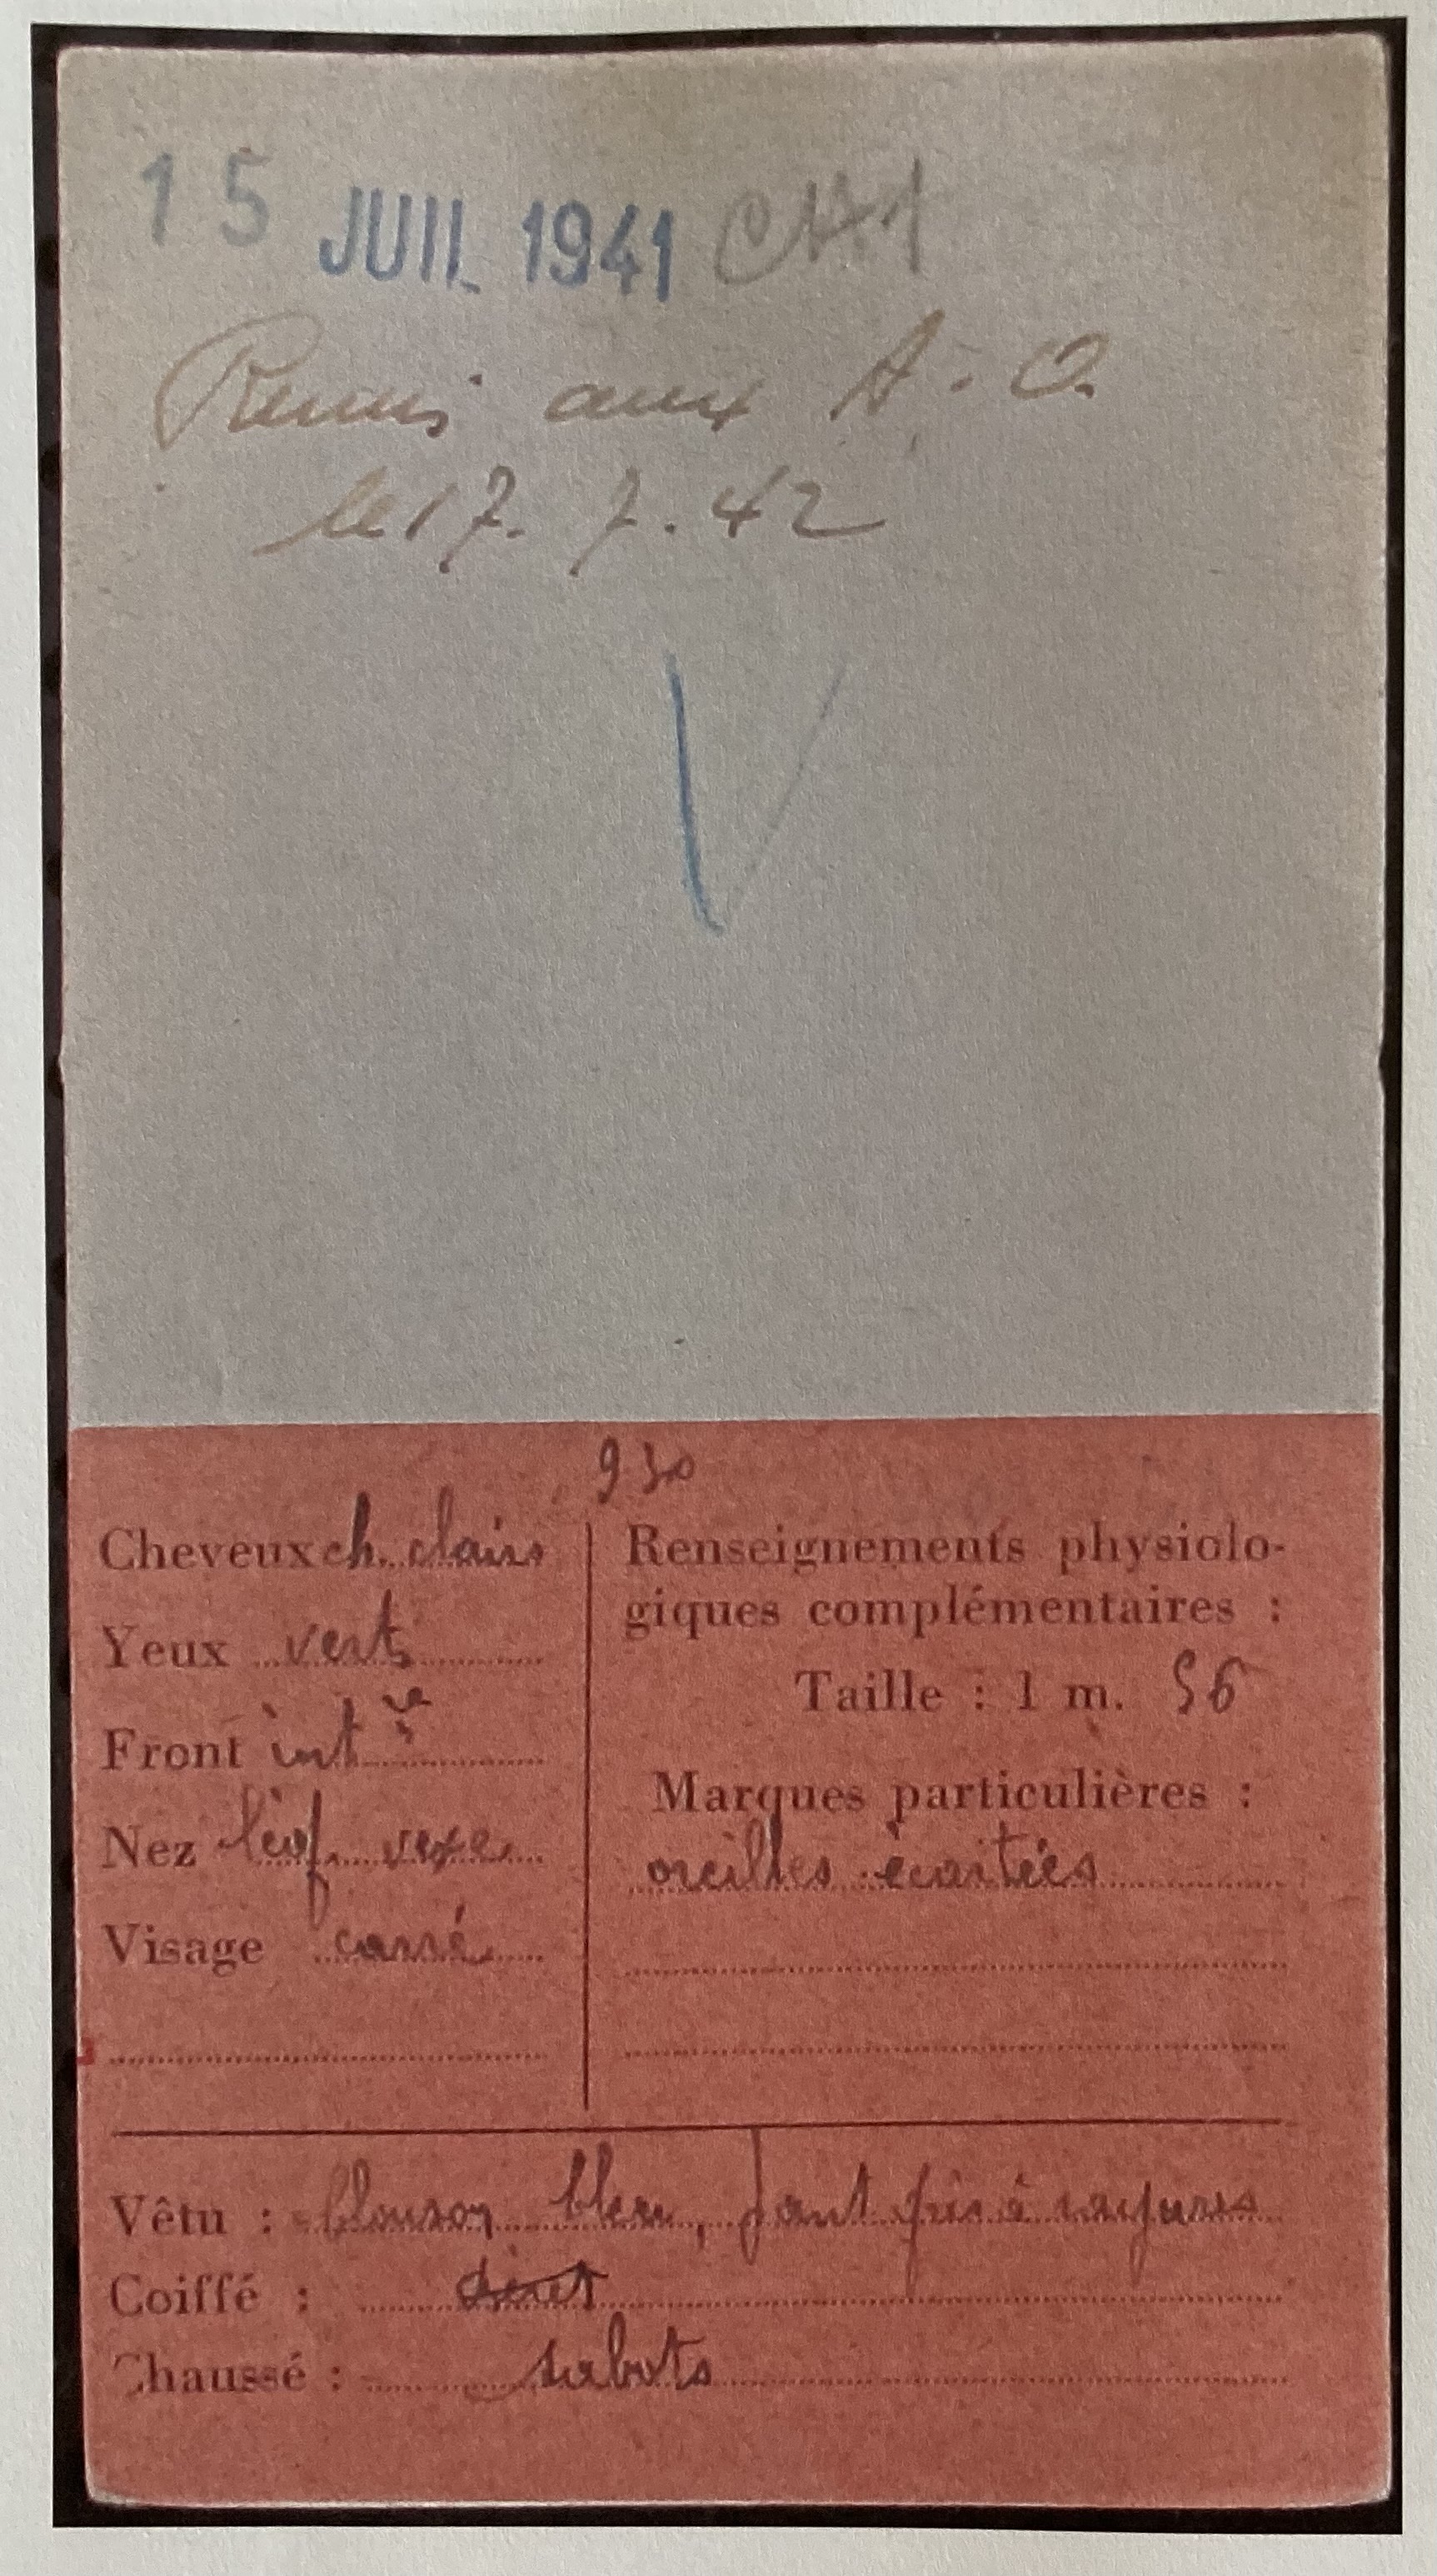 15 JUIL 1941
Remis aux A. O.
le 17. 7. 42
930
Cheveux ch. clairs
Yeux verts
Front int
Nez vexe
Visage carré
Renseignements physiolo-
giques complémentaires :
Taille : 1 m. 56
Marques particulières :
oreilles écartées
Vêtu : blouson bleu, pant gris à rayures
Coiffé :
Chaussé : sabots